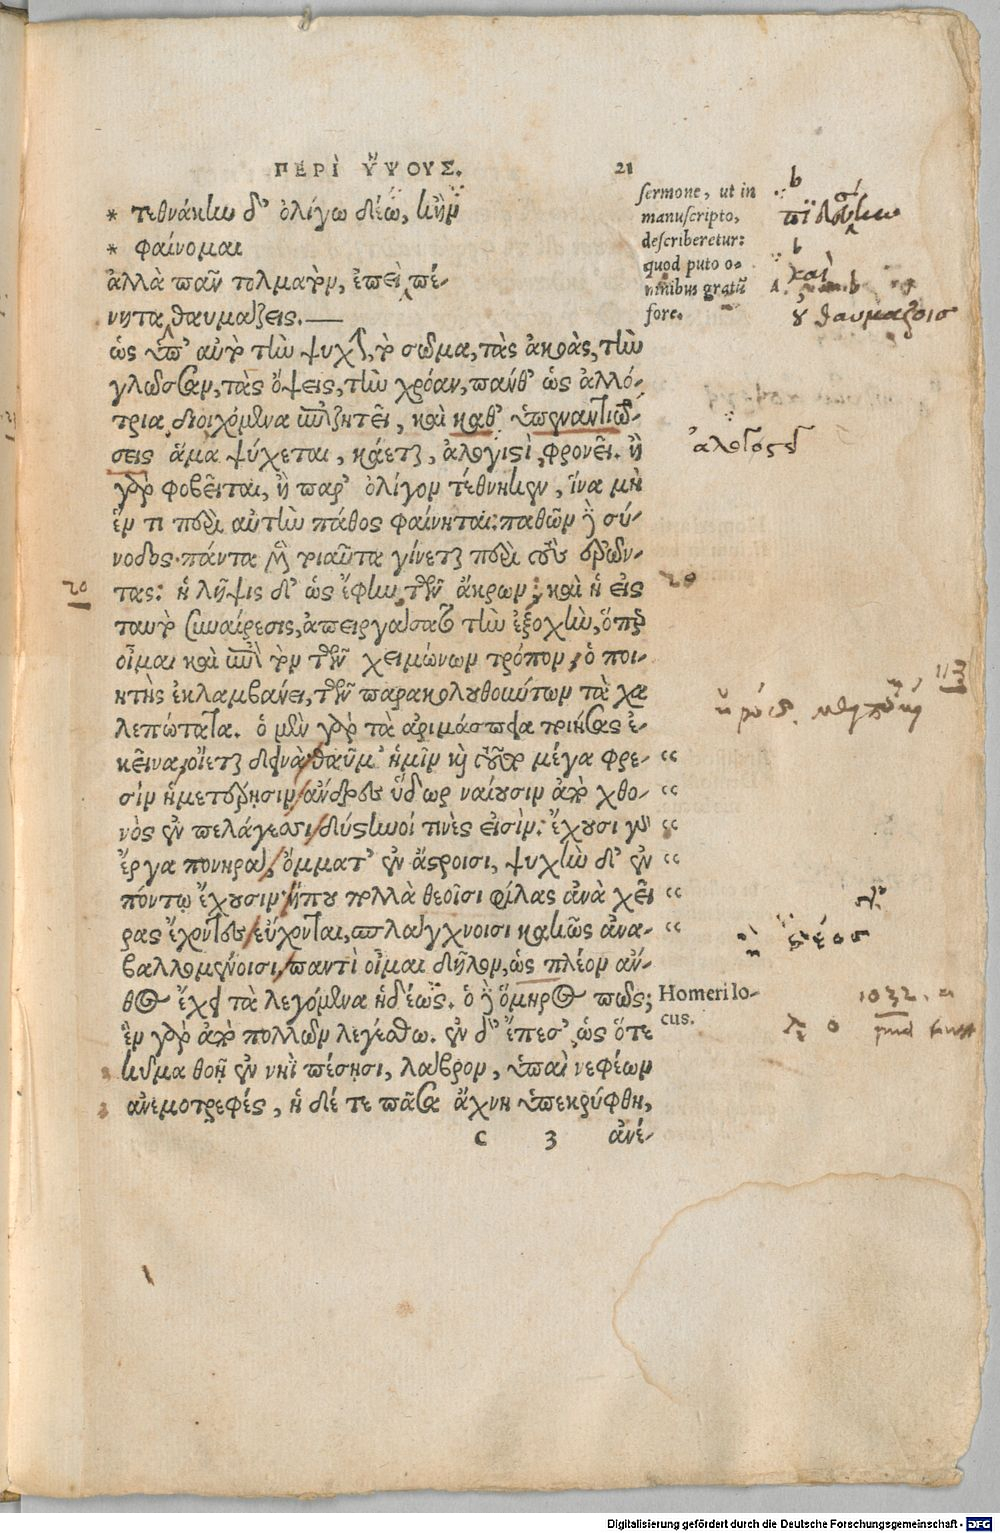 ΠΕΡῚ ὝΨΟΥΣ. 21
* τεθνάκην δ' ὀλίγω δέω,
* φαίνομαι
ἀλλὰ πᾶν τολματὸν, ἐπεὶ πέ-
νητα θαυμάζεις.—
ὡς ὑπ' αὐτὸ τὴν ψυχὴν, τὸ σῶμα, τὰς ἀκοὰς, τὴν
γλῶσσαν, τὰς ὄψεις, τὴν χρόαν, πάνθ' ὡς ἀλλό-
τρια διοιχόμενα ἐπιζητεῖ, καὶ καθ' ὑπεναντιώ-
σεις ἅμα ψύχεται, κάεται, ἀλογιστὶ, φρονεῖ. ἢ
γὰρ φοβεῖται, ἢ παρ' ὀλίγον τέθνηκεν, ἵνα μὴ
ἕν τι περὶ αὐτὴν πάθος φαίνηται· παθῶν δὲ σύ-
νοδος· πάντα μὲν τοιαῦτα γίνεται περὶ τοὺς ἐρῶν-
τας: ἡ λῆψις δ' ὡς ἔφην τῶν ἄκρων, καὶ ἡ εἰς
ταυτὸ συναίρεσις, ἀπειργάσατο τὴν ἐξοχὴν, ὅπερ
οἶμαι καὶ ἐπὶ τὸν τῶν χειμώνων τρόπον, ὁ ποι-
ητὴς ἐκλαμβάνει, τῶν παρακολουθούντων τὰ χα
λεπώτατα. ὁ μὲν γὰρ τὰ ἀριμάσπεια ποιήσας ἐ-
κεῖνα, οἴεται δεινὰ θαῦμ' ἡμῖν καὶ τοῦτο μέγα φρε- “
σὶν ἡμετέρῃσιν ἄνδρες ὕδωρ ναίουσιν ἀπὸ χθο- “
νὸς ἐν πελάγεσσι δύστηνοί τινὲς εἰσὶν: ἔχουσι γὰρ “
ἔργα πονηρά, ὄμματ' ἐν ἄστροισι, ψυχὴν δ' ἐν “
πόντῳ ἔχουσιν ἤπου πολλὰ θεοῖσι φίλας ἀνὰ χεῖ “
ρας ἔχοντες εὔχονται, σπλάγχνοισι κακῶς ἀνα- “
βαλλομένοισι, παντὶ οἶμαι δῆλον, ὡς πλέον ἄν-
θος ἔχει τὰ λεγόμενα ἢ δέως. ὁ δὲ ὅμηρος πῶς;
ἓν γὰρ ἀπὸ πολλῶν λεγέσθω. ἐν δ' ἔπεσ', ὡς ὅτε
κῦμα θοῇ ἐν νηῒ πέσῃσι, λάβρον, ὑπαὶ νεφέων
ἀνεμοτρεφές, ἡ δέ τε πᾶσα ἄχνη ὑπεκρύφθη,
C 3 ἀνέ-
sermone, ut in
manuscripto,
describeretur:
quod puto o-
mnibus gratũ
fore.
Homeri lo-
cus.
20
20
113
δέος
1032.
Digitalisierung gefördert durch die Deutsche Forschungsgemeinschaft - DFG